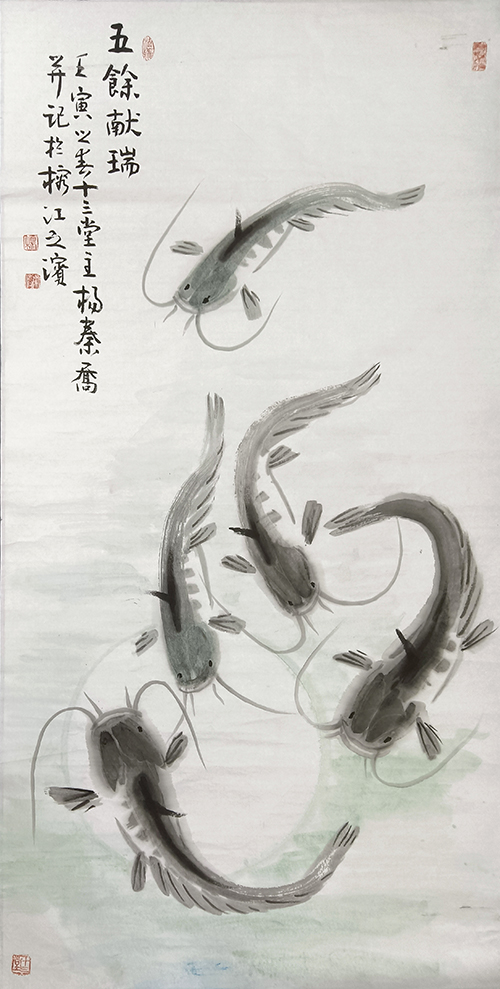 五餘献瑞
壬寅之春十三堂主杨秦喬
并记於榕江之濱